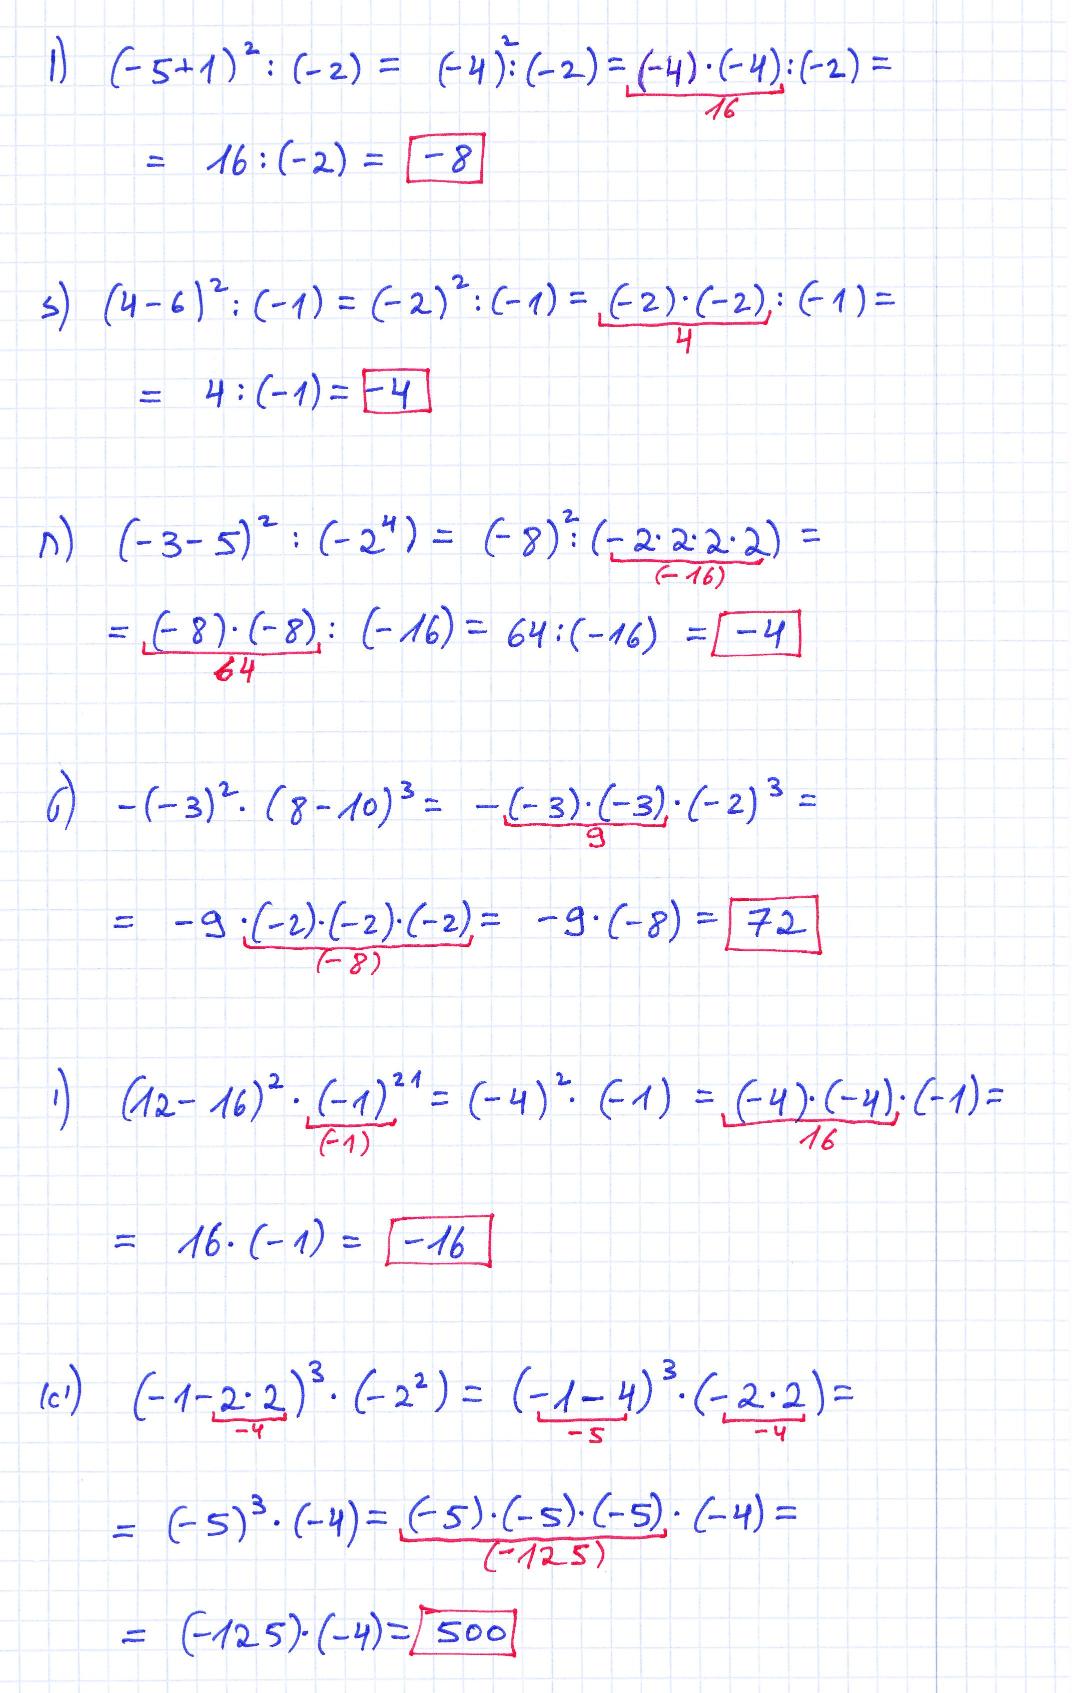 l) (-5+1)² : (-2) = (-4)² : (-2) = (-4)·(-4) : (-2) =
16
= 16 : (-2) = -8
s) (4-6)² : (-1) = (-2)² : (-1) = (-2)·(-2) : (-1) =
4
= 4 : (-1) = -4
n) (-3-5)² : (-2⁴) = (-8)² : (-2·2·2·2) =
(-16)
= (-8)·(-8) : (-16) = 64 : (-16) = -4
64
б) -(-3)² · (8-10)³ = -(-3)·(-3)·(-2)³ =
9
= -9·(-2)·(-2)·(-2) = -9·(-8) = 72
(-8)
ı) (12-16)² · (-1)²¹ = (-4)² · (-1) = (-4)·(-4)·(-1) =
(-1) 16
= 16·(-1) = -16
(-1-2·2)³ · (-2²) = (-1-4)³ · (-2·2) =
-4 -5 -4
= (-5)³ · (-4) = (-5)·(-5)·(-5)·(-4) =
(-125)
= (-125)·(-4) = 500